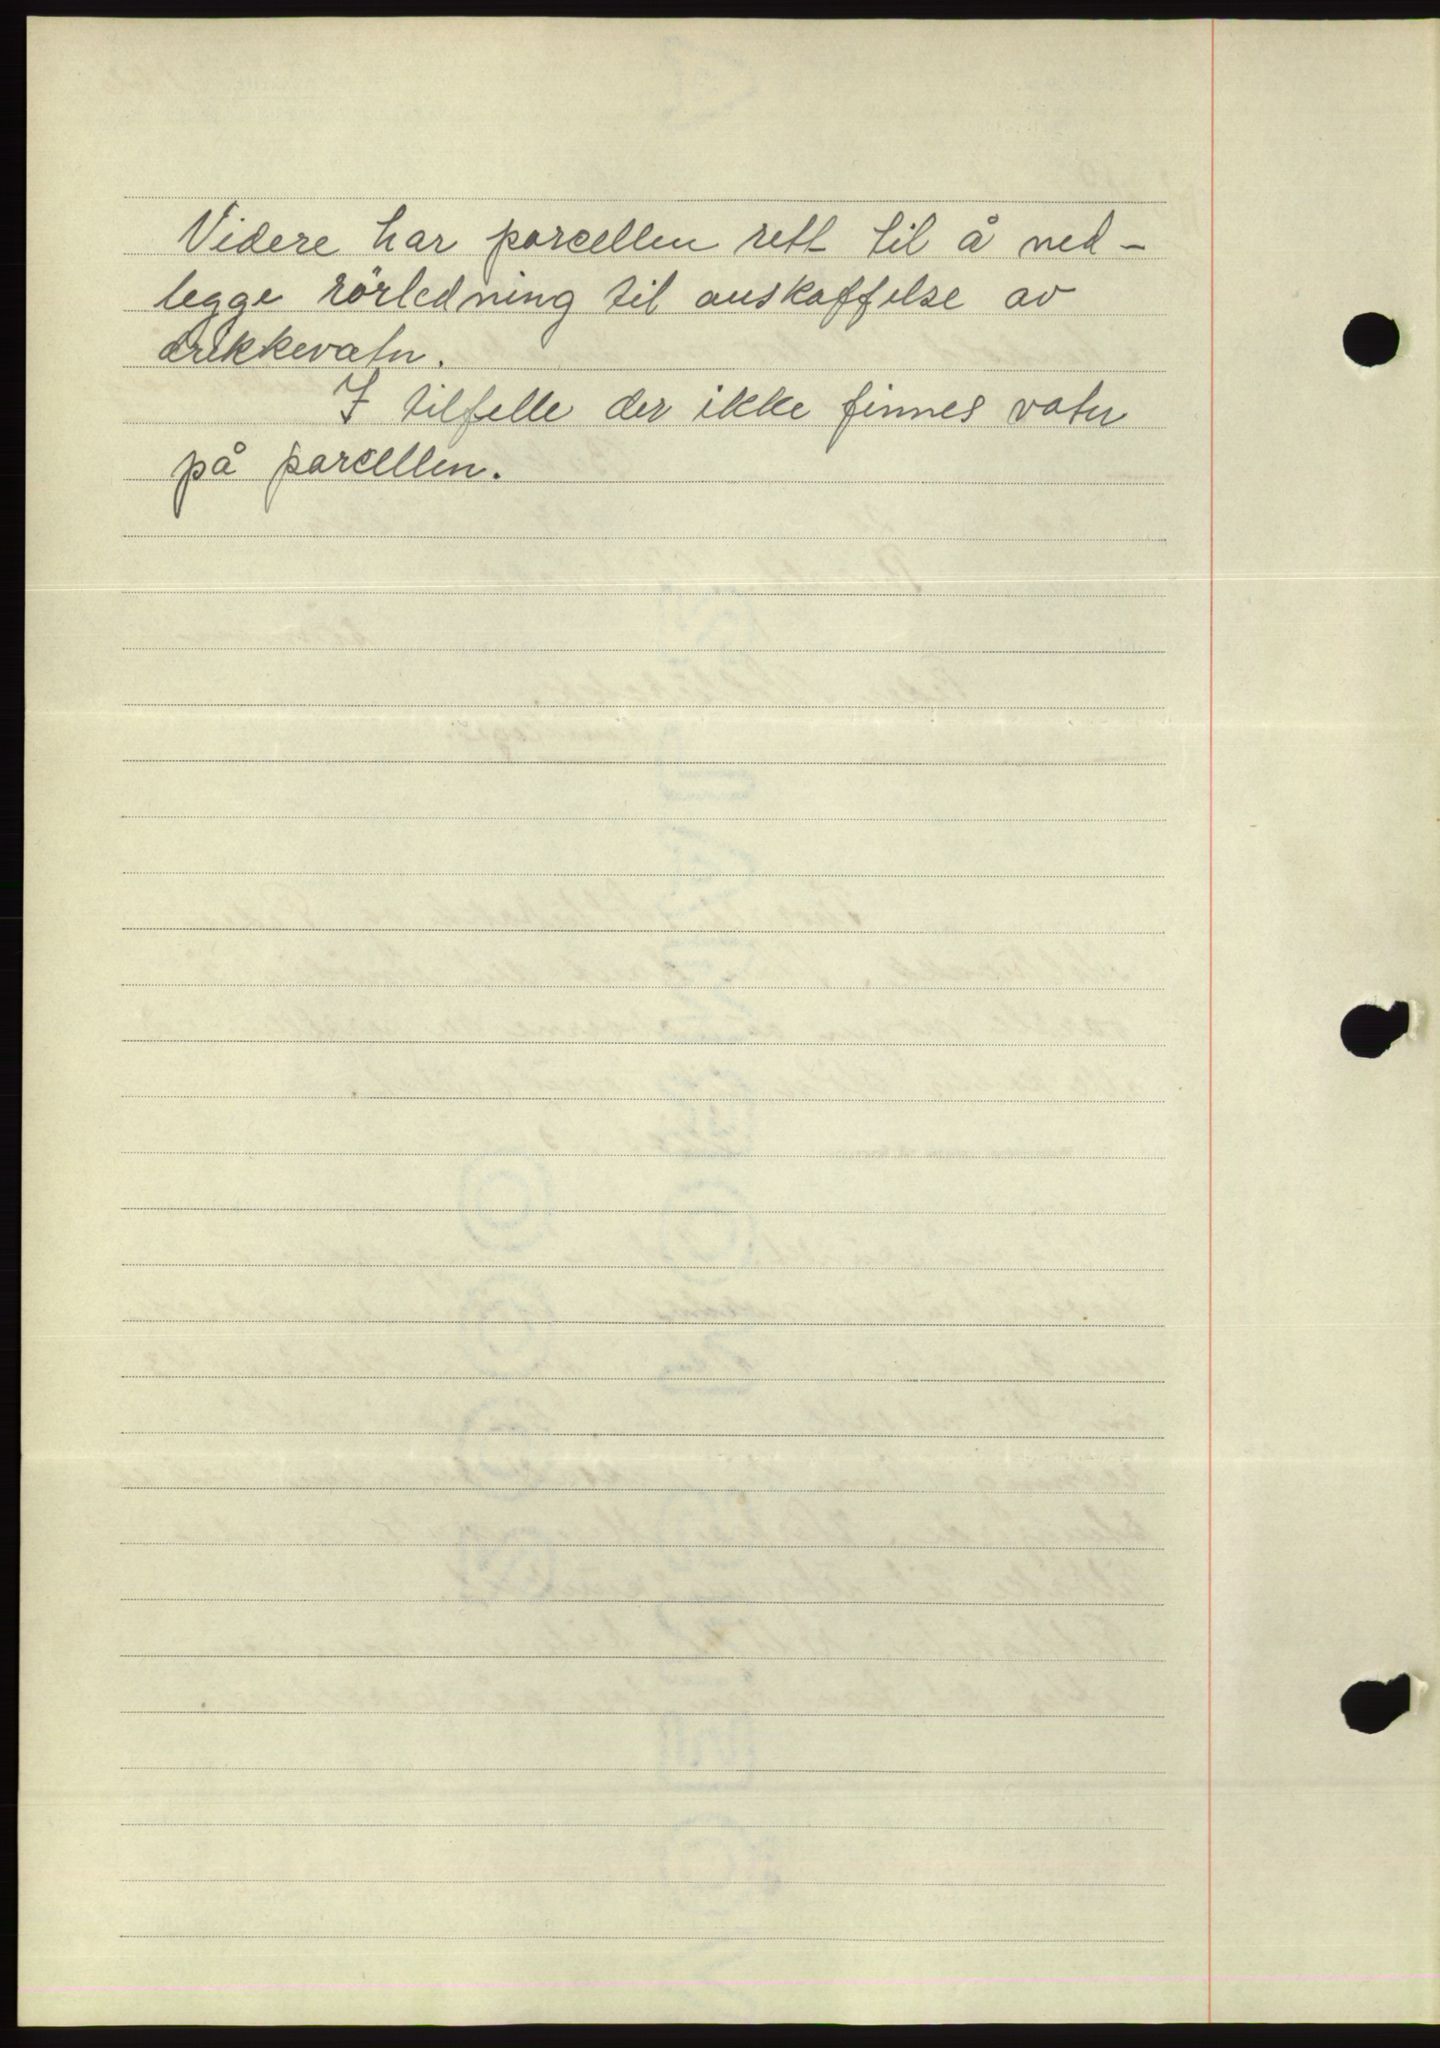 Videre har parcellen rett til å ned-
legge rörledning til anskaffelse av
drikkevatn.
I tilfelle der ikke finnes vatn
på parcellen.